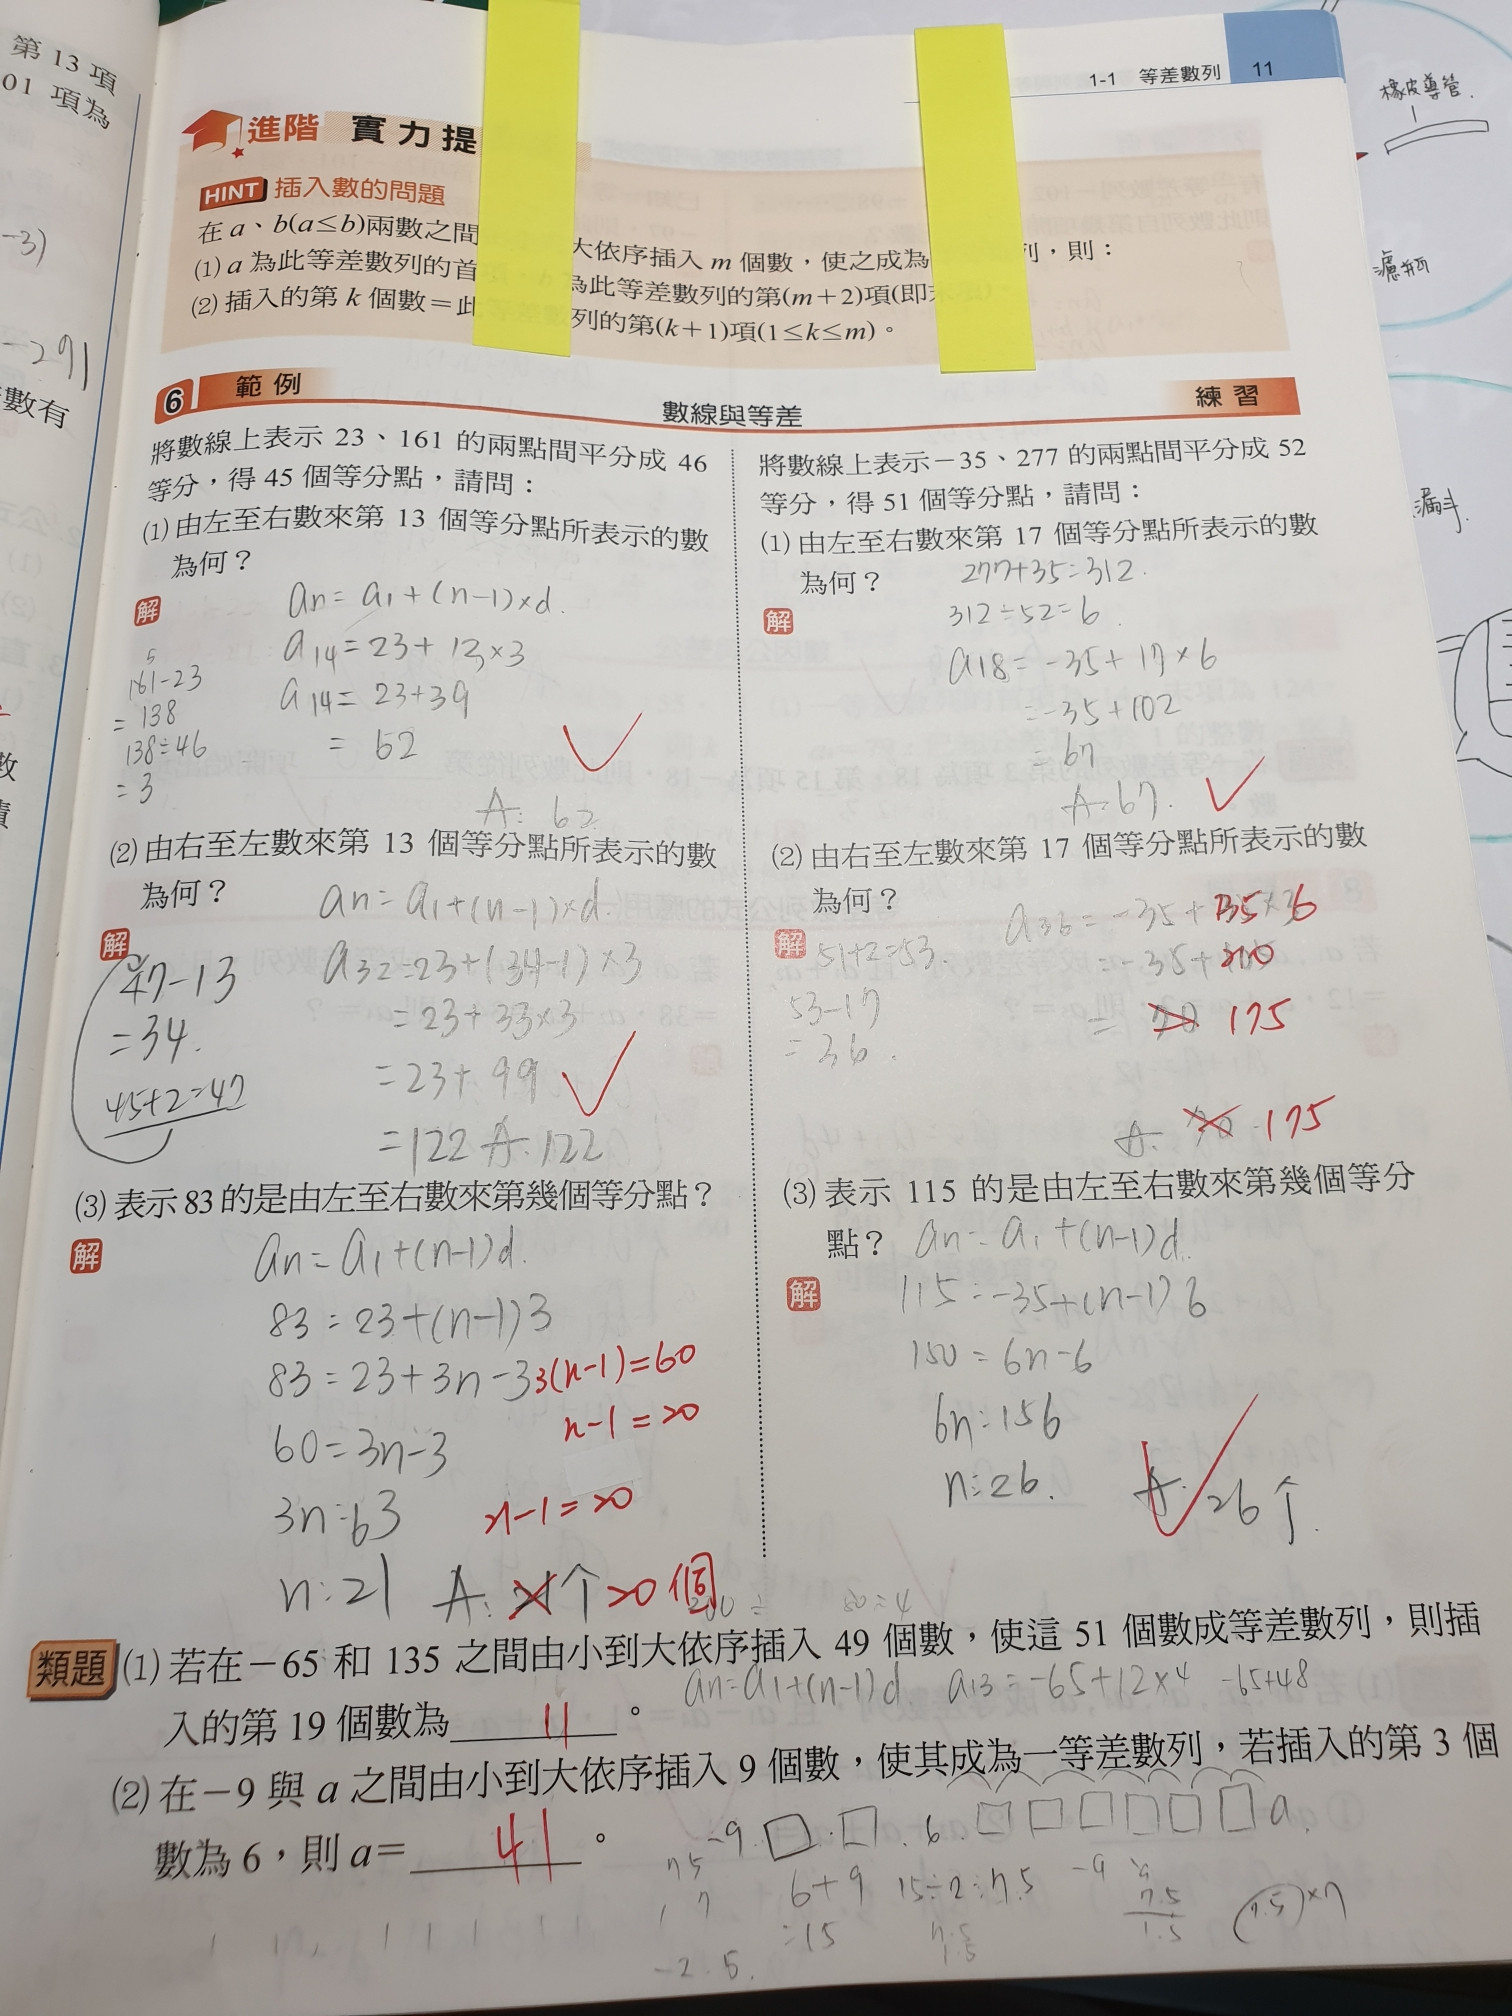 第 13 項
01 項為
-3)
-291
數有
1-1 等差數列 11
橡皮導管.
濾紙
漏斗.
進階 實力提
HINT 插入數的問題
在 a、b(a≤b)兩數之間 大依序插入 m 個數，使之成為 列，則：
(1) a 為此等差數列的首 為此等差數列的第(m+2)項(即
(2) 插入的第 k 個數＝此 列的第(k+1)項(1≤k≤m)。
6 範例 數線與等差 練習
將數線上表示 23、161 的兩點間平分成 46
等分，得 45 個等分點，請問：
(1) 由左至右數來第 13 個等分點所表示的數
為何？
an=a1+(n-1)×d.
解
a14=23+13×3
161-23
=138
138÷46
=3
a14=23+39
=62
A: 62
(2) 由右至左數來第 13 個等分點所表示的數
為何？
an=a1+(n-1)×d.
解
47-13
=34.
45+2=47
a32=23+(34-1)×3
=23+33×3
=23+99
=122 A:122
(3) 表示 83 的是由左至右數來第幾個等分點？
解
an=a1+(n-1)d.
83=23+(n-1)3
83=23+3n-3
3(n-1)=60
60=3n-3
n-1=20
3n=63
n-1=20
n=21 A: 21个 20個
將數線上表示－35、277 的兩點間平分成 52
等分，得 51 個等分點，請問：
(1) 由左至右數來第 17 個等分點所表示的數
為何？
277+35=312.
解
312÷52=6
a18=-35+17×6
=-35+102
=67
A:67.
(2) 由右至左數來第 17 個等分點所表示的數
為何？
a36=-35+35×6
解
51+2=53.
53-17
=36.
=-35+210
= 175
A: 175
(3) 表示 115 的是由左至右數來第幾個等分
點？
an=a1+(n-1)d.
解
115=-35+(n-1)6
150=6n-6
6n=156
n=26.
A: 26个.
類題 (1) 若在－65 和 135 之間由小到大依序插入 49 個數，使這 51 個數成等差數列，則插
an=a1+(n-1)d a13=-65+12×4 -65+48
入的第 19 個數為 11 。
(2) 在－9 與 a 之間由小到大依序插入 9 個數，使其成為一等差數列，若插入的第 3 個
數為 6，則 a＝ 41 。
-9. □.□.6.□□□□□□a.
6+9
=15
15÷2=7.5
-9
7.5
1.5
(7.5)×7
-2.5.